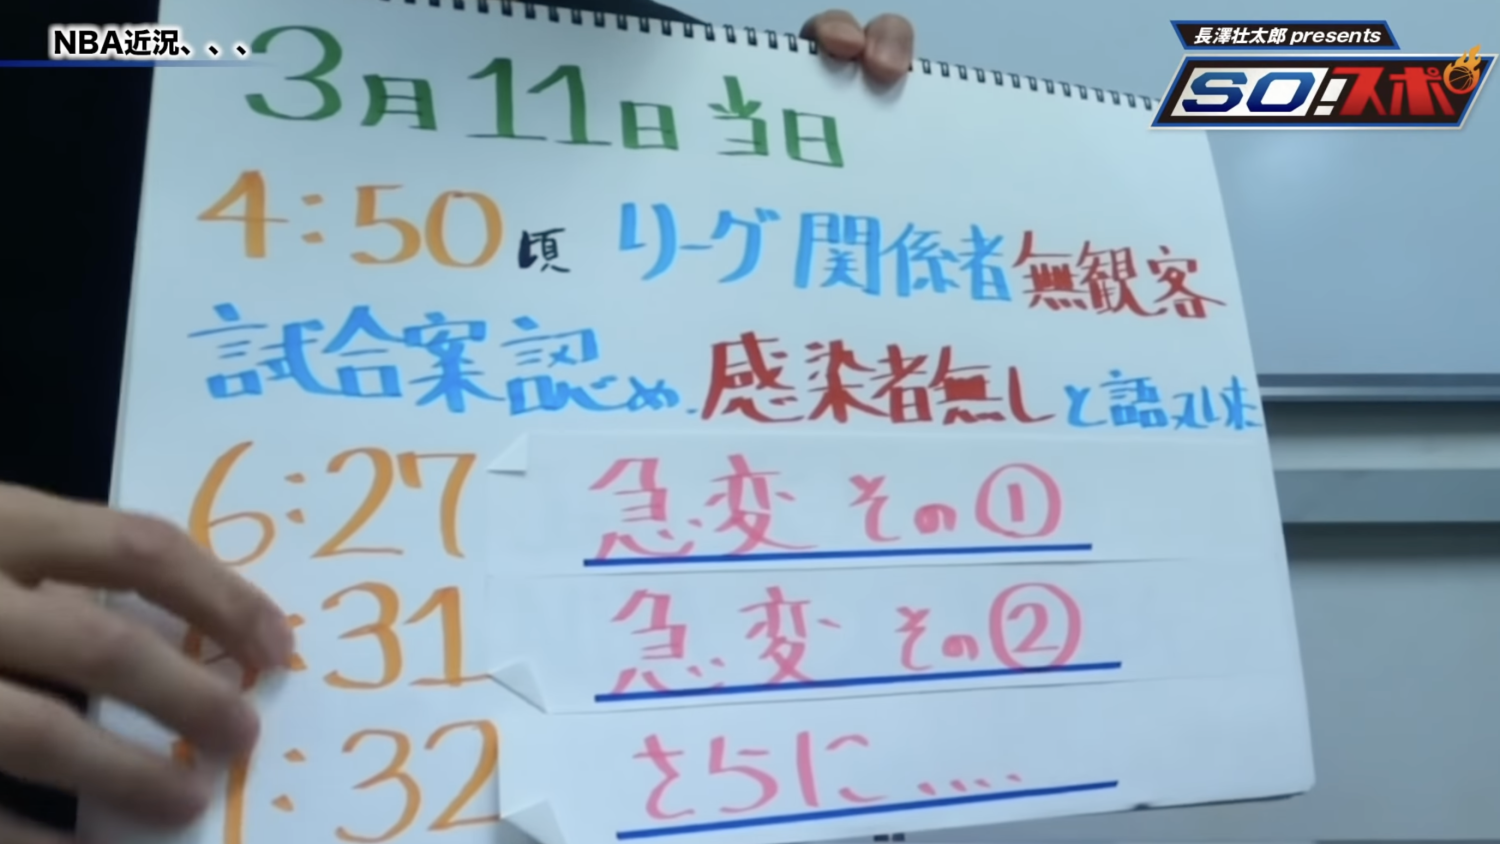 NBA近況、、、
長澤壮太郎 presents
SO!スポ
3月11日当日
4:50頃 リーグ関係者無観客
試合案認め、感染者無しと語っていた
6:27 急変 その①
:31 急変 その②
:32 さらに....